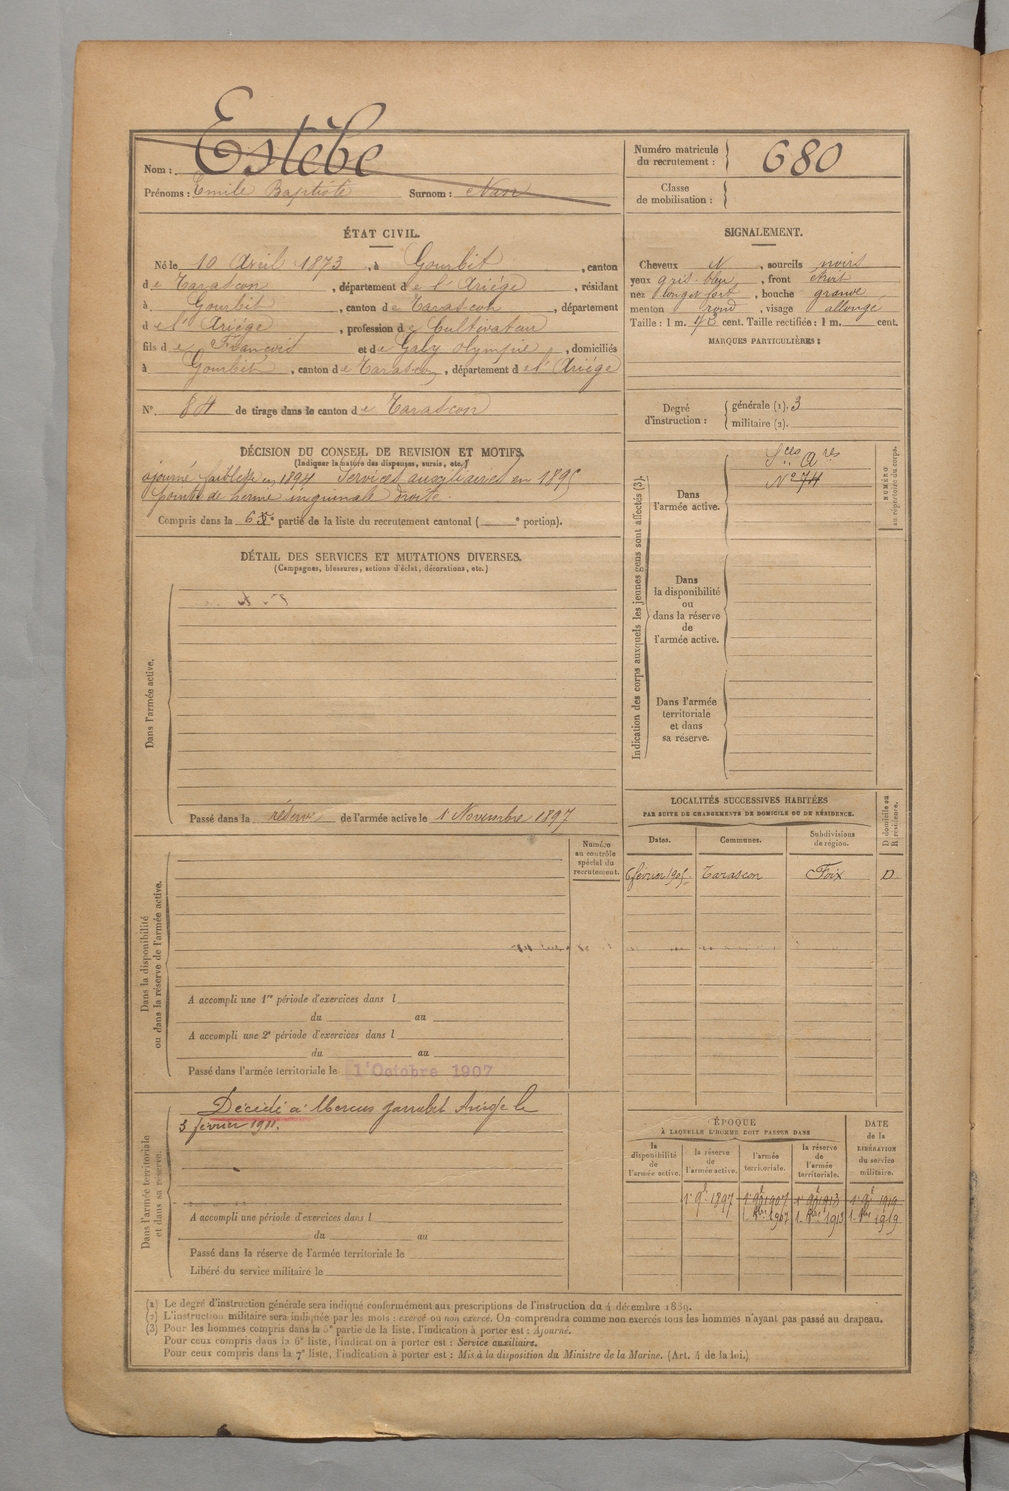 Nom : Estèbe
Prénoms : Emile Baptiste Surnom :
Numéro matricule du recrutement : 680
Classe de mobilisation :
ÉTAT CIVIL.
Né le 10 Avril 1873, à Gourbit, canton
de Tarascon, département de l'Ariège, résidant
à Gourbit, canton de Tarascon, département
de l'Ariège, profession de Cultivateur
fils de François et de Galy Olympie, domiciliés
à Gourbit, canton de Tarascon, département de l'Ariège
N° 84 de tirage dans le canton de Tarascon
SIGNALEMENT.
Cheveux N, sourcils noirs
yeux gris-bleu, front étroit
nez long et fort, bouche grande
menton rond, visage allongé
Taille : 1 m. 73 cent. Taille rectifiée : 1 m. cent.
MARQUES PARTICULIÈRES :
Degré d'instruction : générale (1). 3
militaire (2).
DÉCISION DU CONSEIL DE REVISION ET MOTIFS.
(Indiquer la nature des dispenses, sursis, etc.)
ajourné faiblesse en 1894 Services auxiliaires en 1895
pointe de hernie inguinale droite.
Compris dans la 6e partie de la liste du recrutement cantonal ( e portion).
DÉTAIL DES SERVICES ET MUTATIONS DIVERSES.
(Campagnes, blessures, actions d'éclat, décorations, etc.)
Dans l'armée active.
Passé dans la réserve de l'armée active le 1 Novembre 1897
Indication des corps auxquels les jeunes gens sont affectés (3).
Dans l'armée active.
Sces Ares
N° 74
NUMÉRO au répertoire du corps.
Dans la disponibilité ou dans la réserve de l'armée active.
Dans l'armée territoriale et dans sa réserve.
LOCALITÉS SUCCESSIVES HABITÉES
PAR SUITE DE CHANGEMENTS DE DOMICILE OU DE RÉSIDENCE.
D domicile ou R résidence.
Dates. Communes. Subdivisions de région.
6 février 1905 Tarascon Foix D
Numéro au contrôle spécial du recrutement.
Dans la disponibilité ou dans la réserve de l'armée active.
A accompli une 1re période d'exercices dans l
du au
A accompli une 2e période d'exercices dans l
du au
Passé dans l'armée territoriale le 1 Octobre 1907
Dans l'armée territoriale et dans sa réserve.
Décédé à Mercus Garrabet Ariège le
3 février 1911.
A accompli une période d'exercices dans l
du au
Passé dans la réserve de l'armée territoriale le
Libéré du service militaire le
ÉPOQUE
À LAQUELLE L'HOMME DOIT PASSER DANS
DATE de la LIBÉRATION du service militaire.
la disponibilité de l'armée active. la réserve de l'armée active. l'armée territoriale. la réserve de l'armée territoriale.
1897 1907 1913 1919
1907 1913 1919
(1) Le degré d'instruction générale sera indiqué conformément aux prescriptions de l'instruction du 4 décembre 1889.
(2) L'instruction militaire sera indiquée par les mots : exercé ou non exercé. On comprendra comme non exercés tous les hommes n'ayant pas passé au drapeau.
(3) Pour les hommes compris dans la 5e partie de la liste, l'indication à porter est : Ajourné.
Pour ceux compris dans la 6e liste, l'indication à porter est : Service auxiliaire.
Pour ceux compris dans la 7e liste, l'indication à porter est : Mis à la disposition du Ministre de la Marine. (Art. 4 de la loi.)